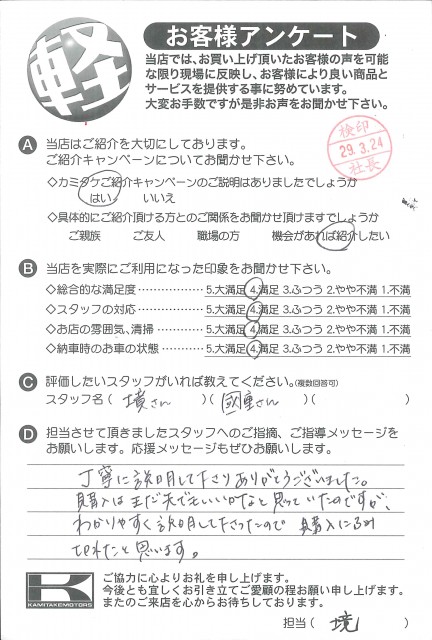 軽
お客様アンケート
当店では、お買い上げ頂いたお客様の声を可能
な限り現場に反映し、お客様により良い商品と
サービスを提供する事に努めています。
大変お手数ですが是非お声をお聞かせ下さい。
A 当店はご紹介を大切にしております。
ご紹介キャンペーンについてお聞かせ下さい。
検印
29.3.24
社長
◇カミタケご紹介キャンペーンのご説明はありましたでしょうか
はい いいえ
◇具体的にご紹介頂ける方とのご関係をお聞かせ頂けますでしょうか
ご親族 ご友人 職場の方 機会があれば紹介したい
B 当店を実際にご利用になった印象をお聞かせ下さい。
◇総合的な満足度……………… 5.大満足 4.満足 3.ふつう 2.やや不満 1.不満
◇スタッフの対応……………… 5.大満足 4.満足 3.ふつう 2.やや不満 1.不満
◇お店の雰囲気、清掃………… 5.大満足 4.満足 3.ふつう 2.やや不満 1.不満
◇納車時のお車の状態………… 5.大満足 4.満足 3.ふつう 2.やや不満 1.不満
C 評価したいスタッフがいれば教えてください。(複数回答可)
スタッフ名( 境さん )( 國重さん )( )
D 担当させて頂きましたスタッフへのご指摘、ご指導メッセージを
お願いします。応援メッセージもぜひお願いします。
丁寧に説明して下さりありがとうございました。
購入はまだ先でもいいかなと思っていたのですが、
わかりやすく説明して下さったので 購入にふみ
切れたと思います。
K
KAMITAKEMOTORS
ご協力に心よりお礼を申し上げます。
今後とも宜しくお引き立てご愛顧の程お願い申し上げます。
またのご来店を心からお待ちしております。
担当( 境 )